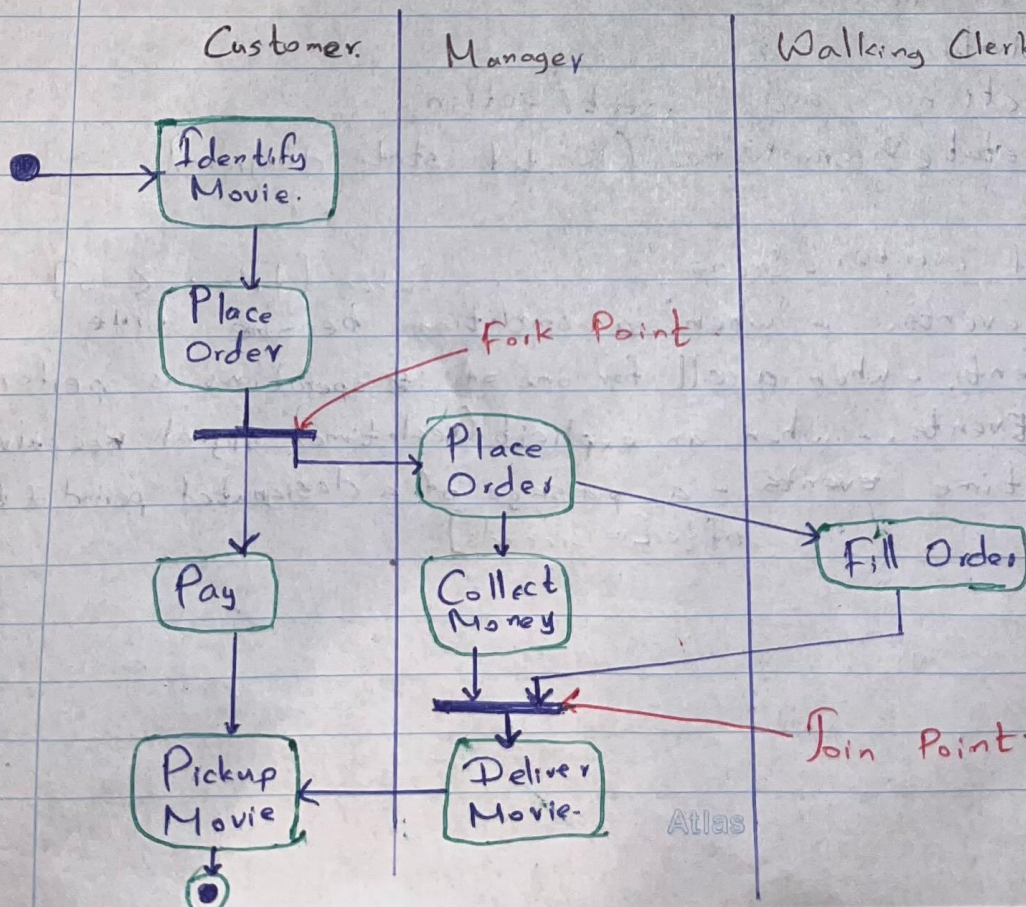 Customer.
Manager
Walking Clerk
Identify
Movie.
Place
Order
Fork Point
Place
Order
Fill Order
Pay
Collect
Money
Join Point
Pickup
Movie
Deliver
Movie.
Atlas